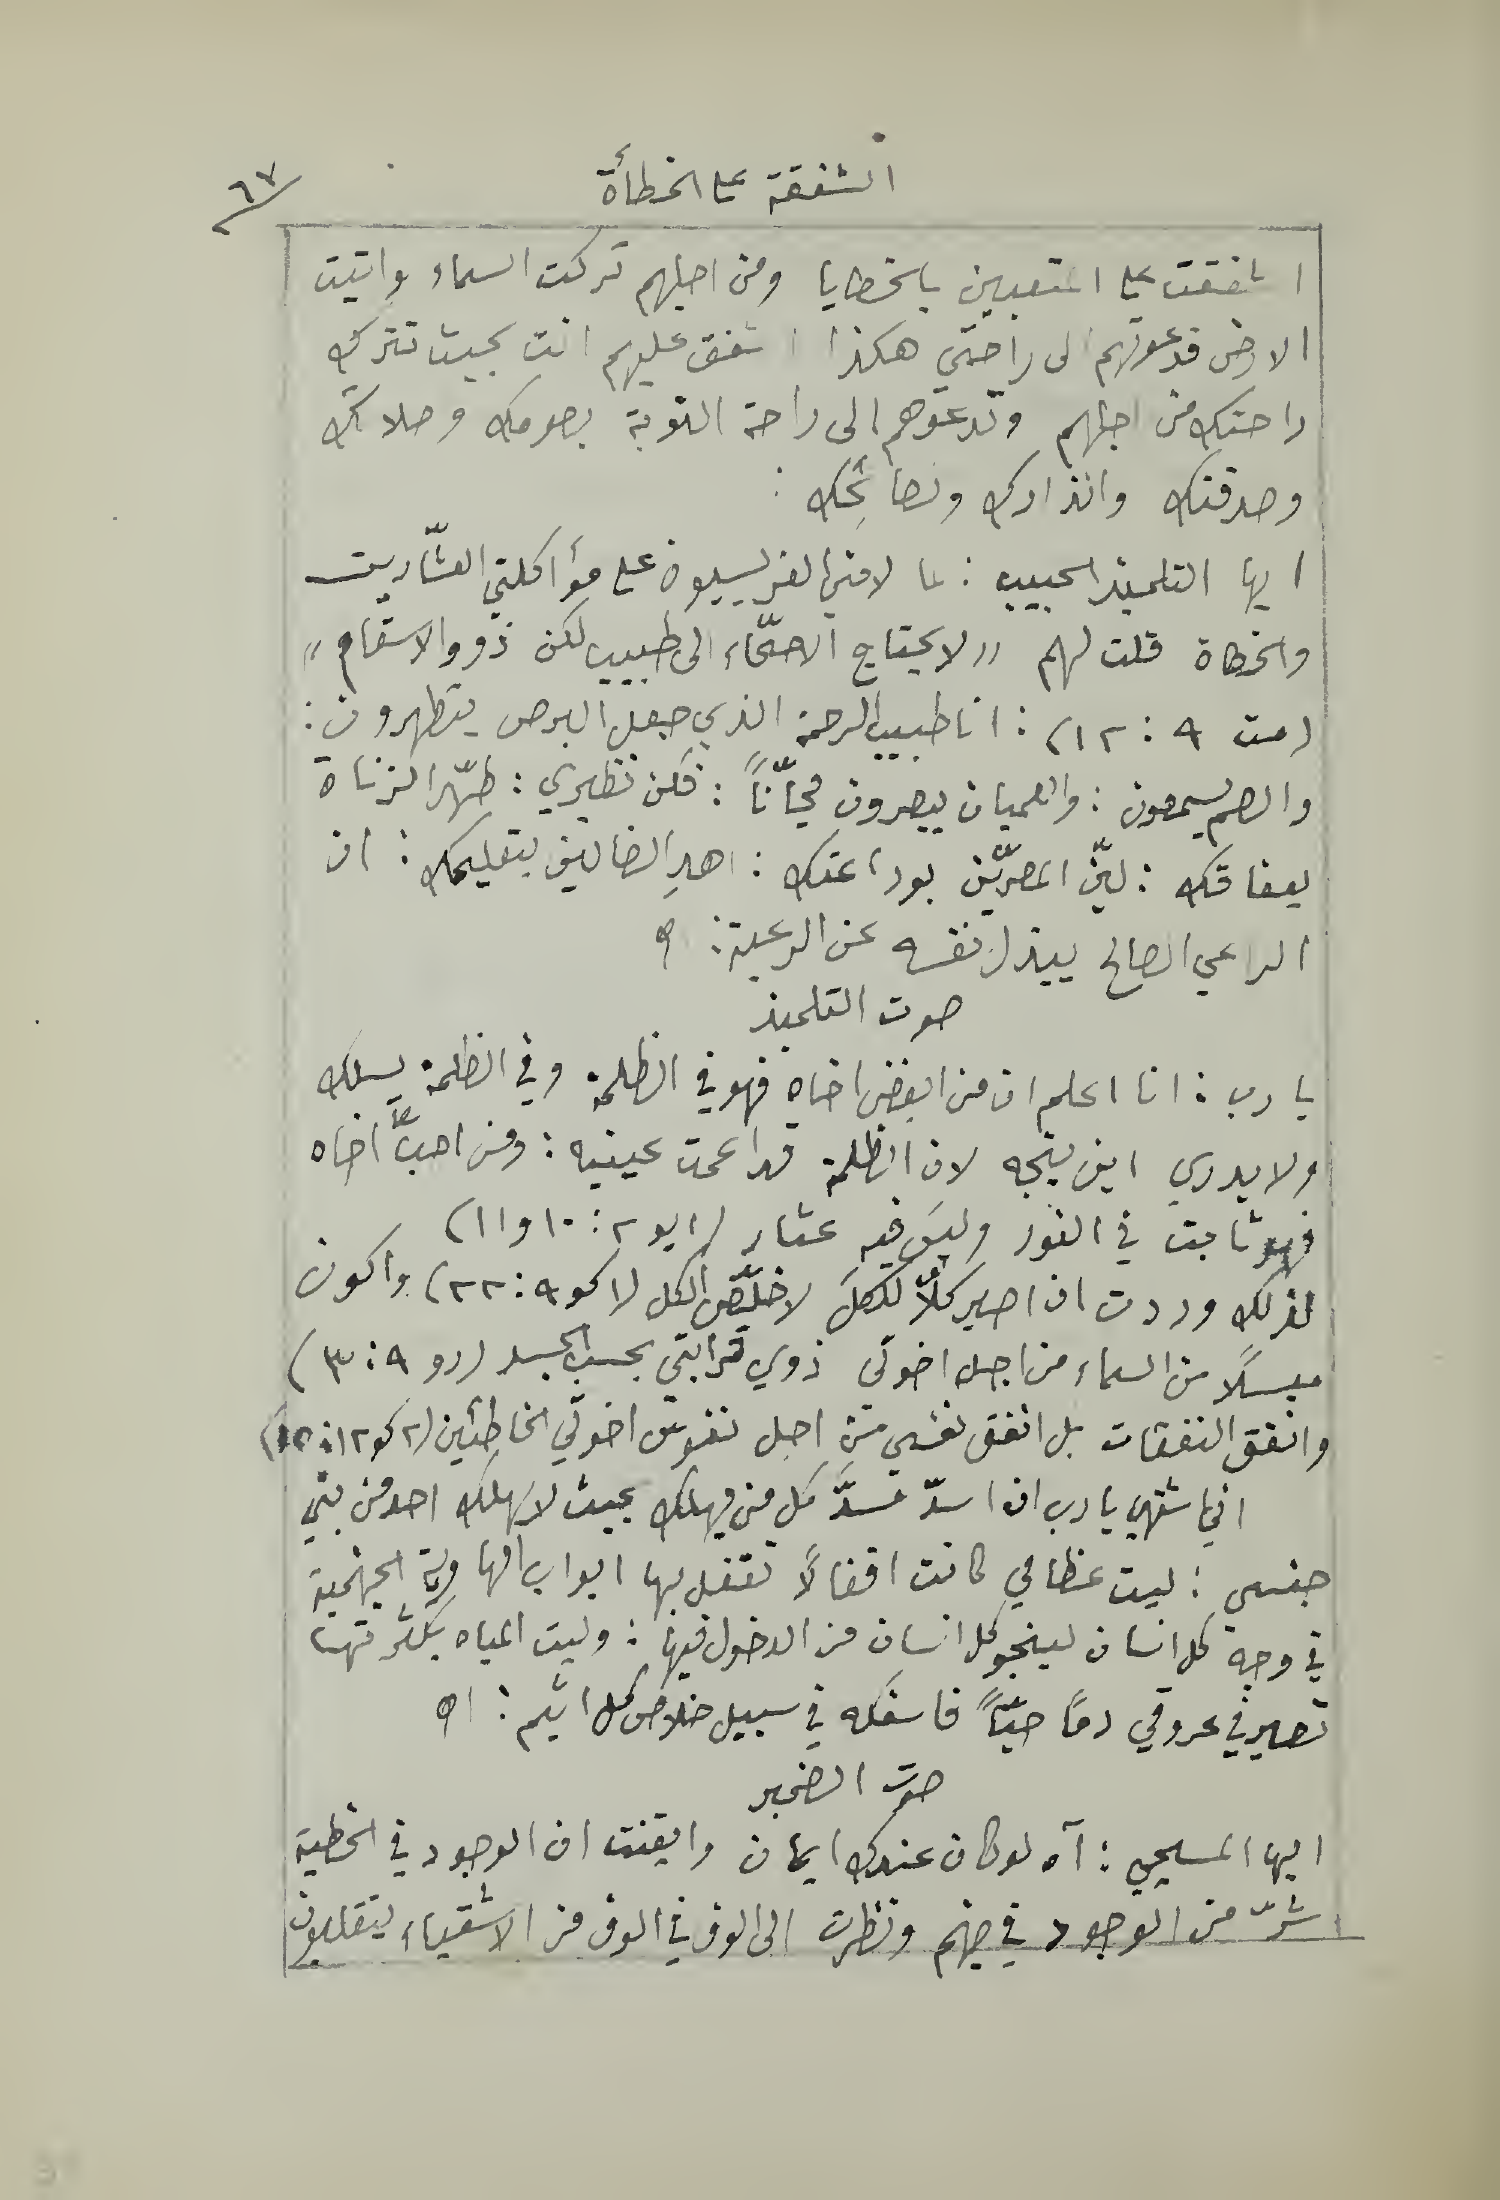 الشفقة على الخطأة
٦٧
اشفقت على المتعبين بالخطايا ومن اجلهم تركت السماء واتيت
الارض فدعوتهم الى راحتي هكذا اشفق عليهم انت بحيث تترك
راحتك من اجلهم وتدعوهم الى راحة التوبة بصومك وصلاتك
وصدقتك وانذارك ونصائحك :
ايها التلميذ الحبيب : لما لامني الفريسيون على مؤاكلتي العشّارين
والخطاة قلت لهم «لا يحتاج الاصحّاء الى طبيب لكن ذوو الاسقام»
(مت ٩ : ١٢) : انا طبيب الرحمة الذي جعل البرص يتطهرون :
والصم يسمعون : والعميان يبصرون مجّاناً : فكن نظيري : طهّر الزناة
بعفافتك : ليّن المصرّين بوداعتك : اهدِ الضالين بتعليمك : ان
الراعي الصالح يبذل نفسه عن الرعية : اه
صوت التلميذ
يا رب : انا اعلم ان من ابغض اخاه فهو في الظلمة وفي الظلمة يسلك
ولا يدري اين يتجه لان الظلمة قد اعمت عينيه : ومن احبّ اخاه
فهو ثابت في النور وليس فيه عثار (١يو ٢ : ١٠ و١١)
لذلك وددت ان اصير كلاًّ للكل لاخلّص الكل (١كو ٩ : ٢٢) واكون
مبسلاً من السماء من اجل اخوتي ذوي قرابتي بحسب الجسد (رو ٩ : ٣)
وانفق النفقات بل انفق نفسي من اجل نفوس اخوتي الخاطئين (٢كو ١٢ : ١٥)
اني اشتهي يا رب ان اسدّ مسدّ كل من يهلك بحيث لا يهلك احد من بني
جنسي : ليت عظامي كانت اقفالاً تقفل بها ابواب الهاوية الجهنمية
في وجه كل انسان لينجو كل انسان من الدخول فيها : وليت المياه بكثرتها
تصير في عروقي دمًا حيّاً فاسفكه في سبيل خلاص كل اثيم : اه
صوت الضمير
ايها المسيحي : آه لو كان عندك ايمان وايقنت ان الوجود في الخطية
اشرّ من الوجود في جهنم ونظرت الى الوف في الوف من الاشقياء يتقلبون